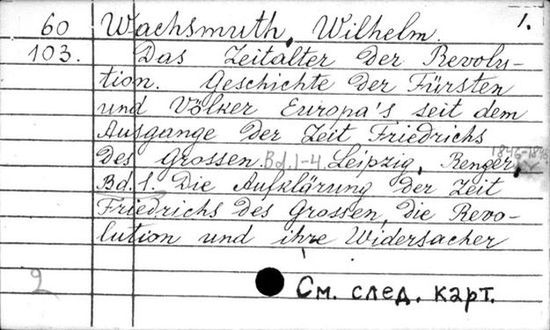 60 Wachsmuth, Wilhelm. 1.
103. Das Zeitalter der Revolu-
tion. Geschichte der Fürsten
und Völker Europa's seit dem
Ausgange der Zeit Friedrichs
des Grossen. Bd. 1-4. Leipzig, Renger,
Bd. 1. Die Aufklärung der Zeit
Friedrichs des Grossen, die Revo-
lution und ihre Widersacher
2
См. след. карт.